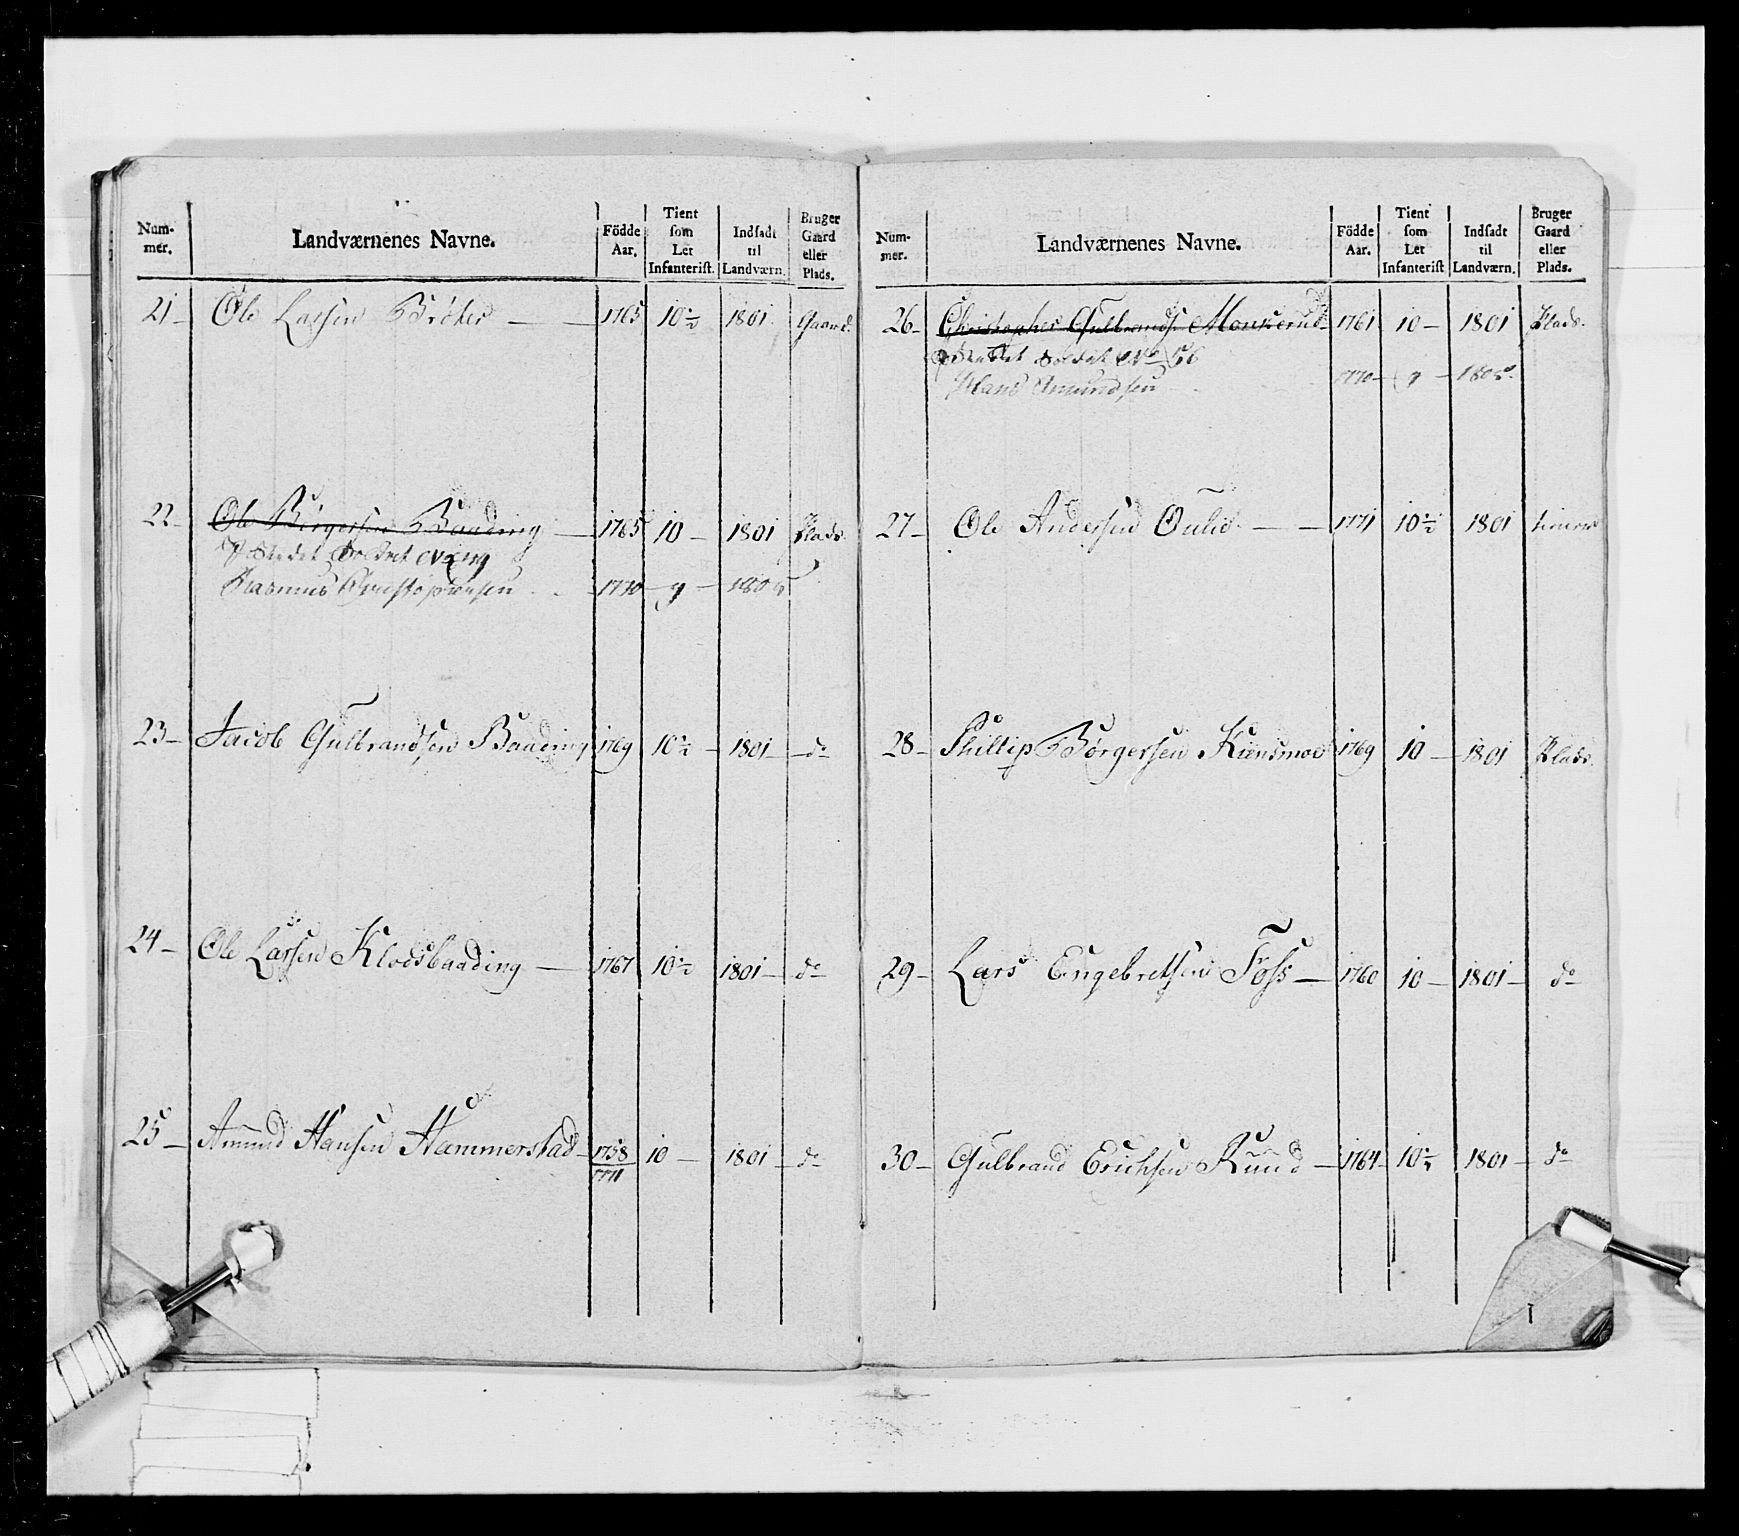 Num-mer. Landværnenes Navne. Födde Aar. Tient som Let Infanterist. Indsadt til Landværn. Bruger Gaard eller Plads.
21 Ole Larsen Bröter 1765 10½ 1801 Gaard.
22 Ole Börgersen Baading 1765 10 1801 Plads
I Stedet Soldat No
Rasmus Christophersen 1770 9 1805
23 Jacob Gulbrandsen Baading 1769 10½ 1801 do
24 Ole Larsen Klodsbaading 1767 10½ 1801 do
25 Amund Hansen Hammerstad 1758 10 1801 do
1771
Num-mer. Landværnenes Navne. Födde Aar. Tient som Let Infanterist Indsadt til Landværn. Bruger Gaard eller Plads.
26 Christopher Gulbrands. Monserud 1761 10 1801 Plads.
I Stedet Soldat No 56
Hans Amundsen 1770 9 1805
27 Ole Andersen Oulie 1771 10½ 1801
28 Phillip Börgersen Kiensmoe 1769 10 1801 Plads.
29 Lars Engebretsen Foss 1760 10 1801 do
30 Gulbrand Erichsen Ruud 1764 10½ 1801 do